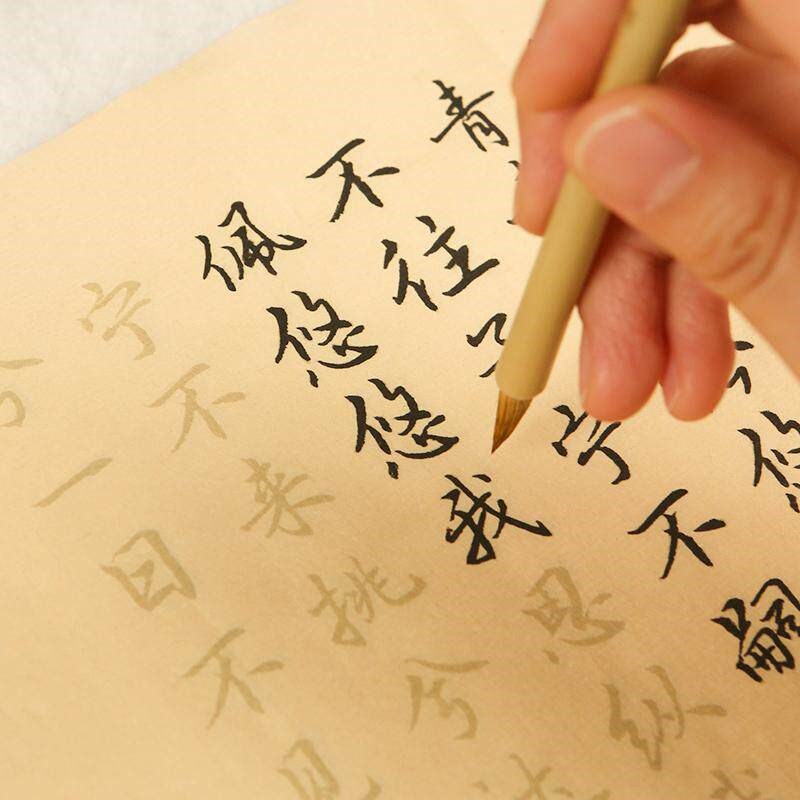 青悠
不往子宁不嗣
佩悠悠我思纵
宁不来挑兮
兮一日不见